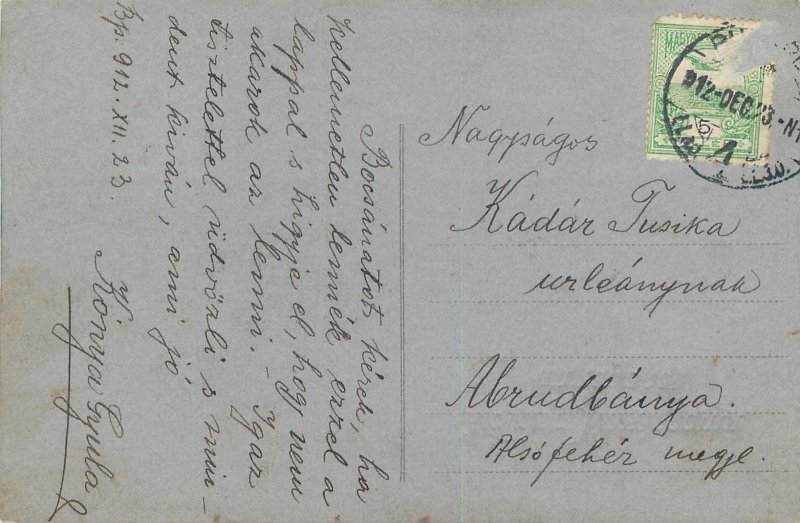 Bocsánatot kérek, ha
kellemetlen lennék ezzel a
lappal s higyje el, hogy nem
akarok az lenni. – Igaz
tisztelettel üdvözli s min-
dent kiván, ami jó
Kónya Gyula
Bp. 912. XII. 23.
Nagyságos
Kádár Tusika
urleánynak
Abrudbánya.
Alsófehér megye.
MAGYAR
912-DEC.23-N1
5
4